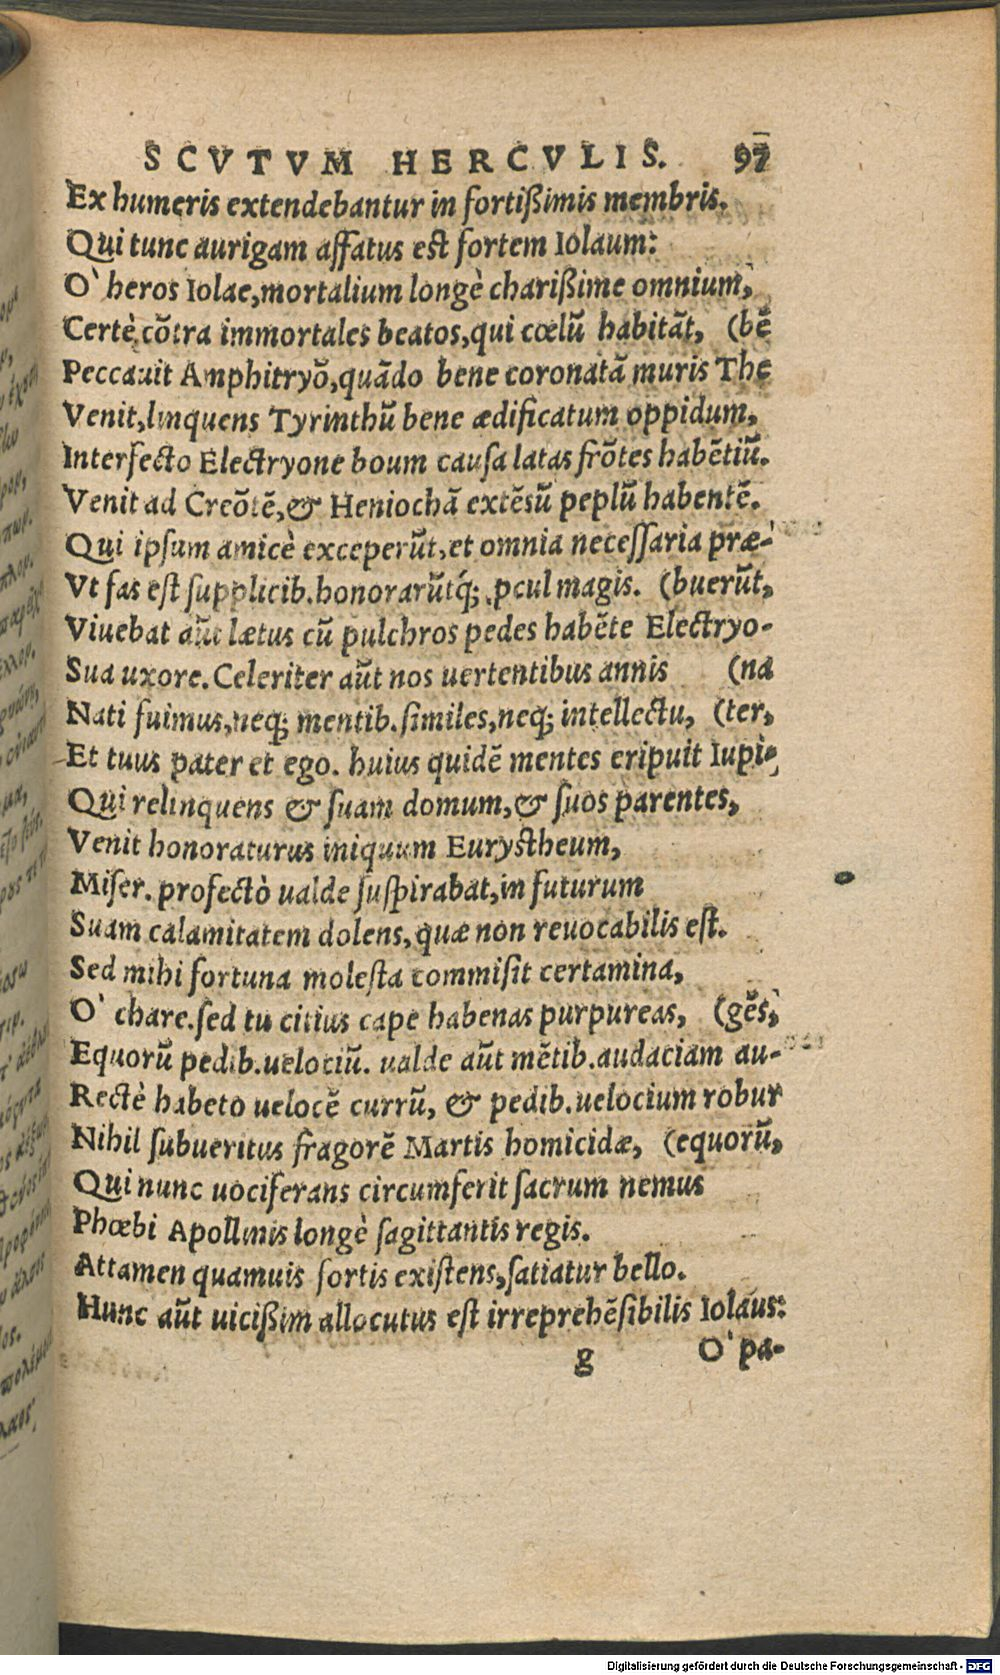 SCVTVM HERCVLIS. 97
Ex humeris extendebantur in fortißimis membris.
Qui tunc aurigam affatus est fortem Iolaum:
O' heros Iolae,mortalium longè charißime omnium,
Certè cõtra immortales beatos,qui cœlũ habitãt, (bẽ
Peccauit Amphitryõ,quãdo bene coronatã muris The
Venit,linquens Tyrinthũ bene ædificatum oppidum,
Interfecto Electryone boum causa latas frõtes habẽtiũ.
Venit ad Creõtẽ,& Heniochã extẽsũ peplũ habentẽ.
Qui ipsum amicè exceperũt,et omnia necessaria præ-
Vt fas est supplicib.honorarũtq́; pcul magis. (buerũt,
Viuebat aũt lætus cũ pulchros pedes habẽte Electryo-
Sua uxore.Celeriter aũt nos uertentibus annis (na
Nati fuimus,neq; mentib.similes,neq; intellectu, (ter,
Et tuus pater et ego. huius quidẽ mentes eripuit Iupi-
Qui relinquens & suam domum,& suos parentes,
Venit honoraturus iniquum Eurystheum,
Miser. profectò ualde suspirabat,in futurum
Suam calamitatem dolens,quæ non reuocabilis est.
Sed mihi fortuna molesta commisit certamina,
O' chare.sed tu citius cape habenas purpureas, (gẽs,
Equorũ pedib.uelociũ. ualde aũt mẽtib.audaciam au-
Rectè habeto uelocẽ currũ, & pedib.uelocium robur
Nihil subueritus fragorẽ Martis homicidæ, (equorũ,
Qui nunc uociferans circumferit sacrum nemus
Phœbi Apollinis longè sagittantis regis.
Attamen quamuis fortis existens,satiatur bello.
Hunc aũt uicißim allocutus est irreprehẽsibilis Iolaus:
g O' pa-
Digitalisierung gefördert durch die Deutsche Forschungsgemeinschaft - DFG